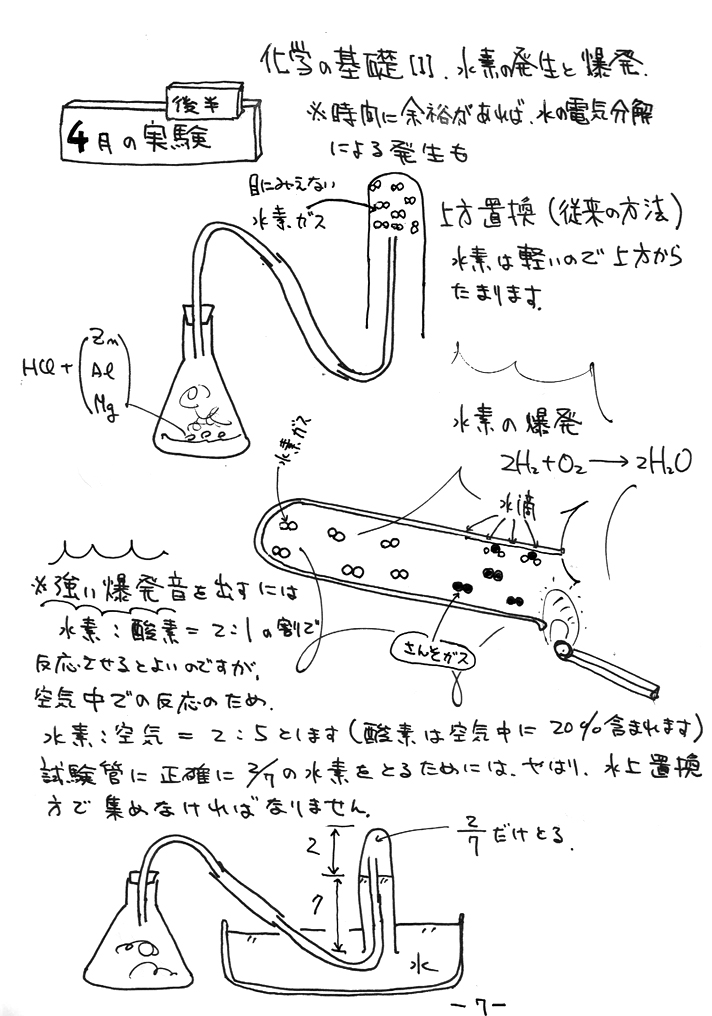 化学の基礎[1]. 水素の発生と爆発.
後半
4月の実験
※時間に余裕があれば、水の電気分解
による発生も
目にみえない
水素ガス
上方置換(従来の方法)
水素は軽いので上方から
たまります.
HCl+
Zn
Al
Mg
水素の爆発
2H₂+O₂→2H₂O
水素ガス
水滴
※強い爆発音を出すには
水素:酸素=2:1の割で
反応させるとよいのですが,
空気中での反応のため.
さんそガス
水素:空気=2:5とします(酸素は空気中に20%含まれます)
試験管に正確に2/7の水素をとるためには、やはり、水上置換
方で集めなければなりません.
2
2/7だけとる.
7
水
-7-